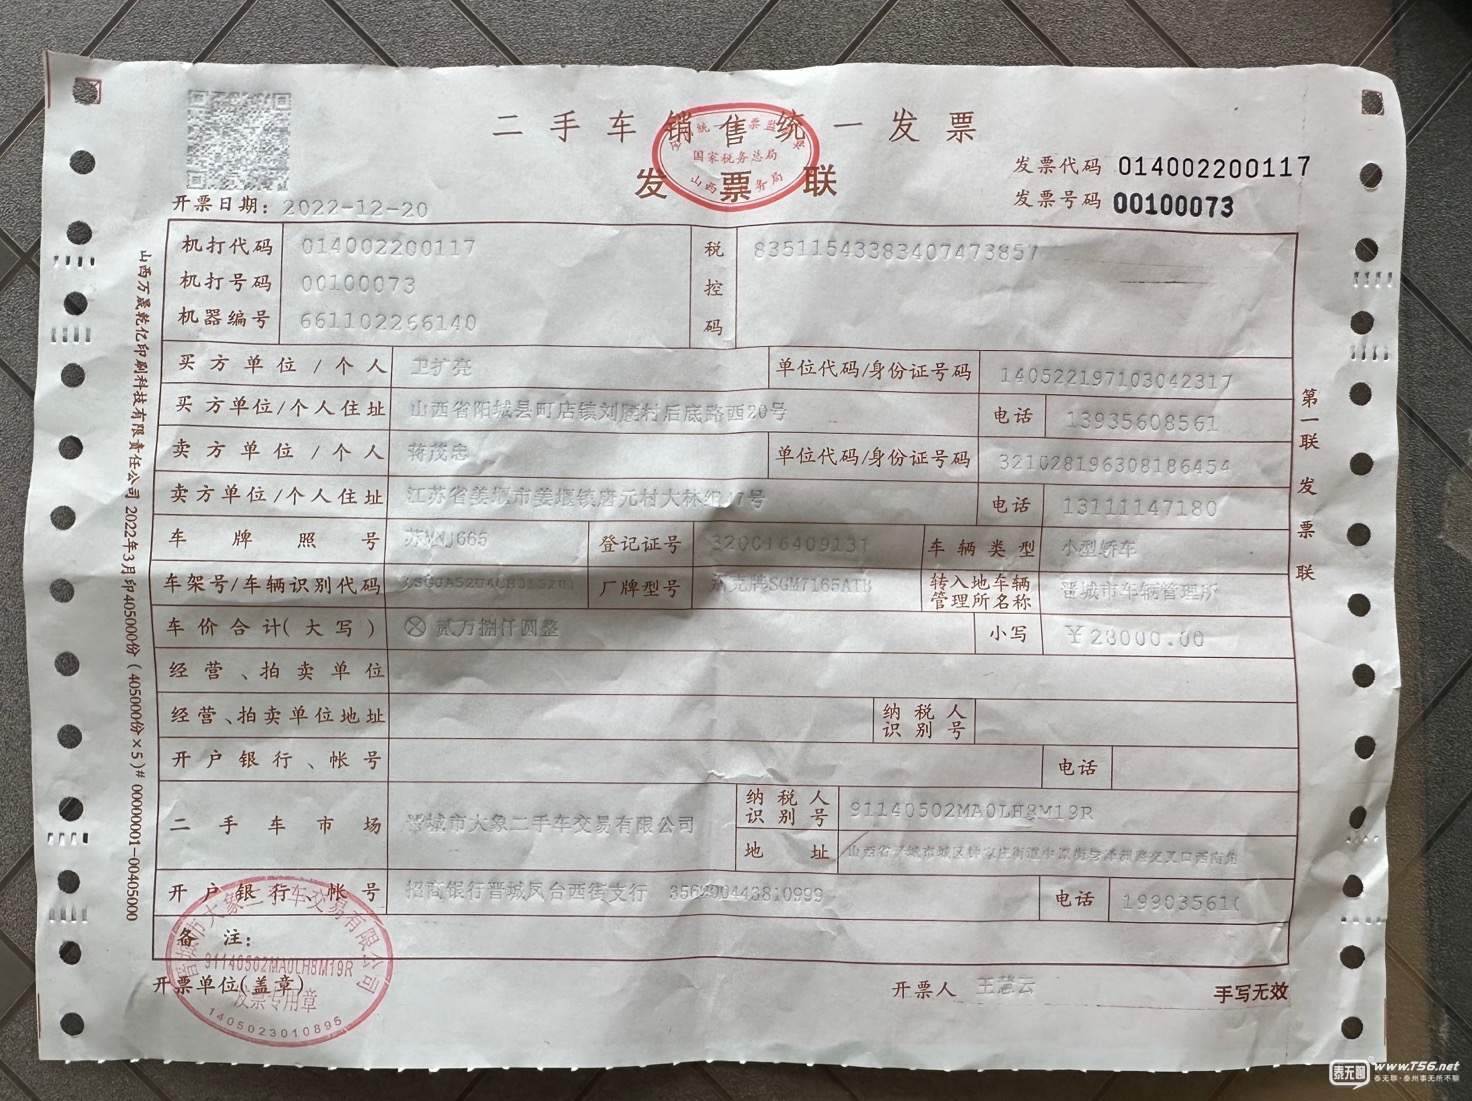 二手车销售统一发票
国家税务总局
发票联
发票代码 014002200117
发票号码 00100073
开票日期: 2022-12-20
机打代码 014002200117
机打号码 00100073
机器编号 661102266140
税控码 83511543383407473857
买方单位/个人 卫扩亮 单位代码/身份证号码 140522197103042317
买方单位/个人住址 山西省阳城县町店镇刘腰村后底路西20号 电话 13935608561
卖方单位/个人 蒋茂忠 单位代码/身份证号码 321028196308186454
卖方单位/个人住址 江苏省姜堰市姜堰镇唐元村大林组17号 电话 13111147180
车牌照号 登记证号 320016409131 车辆类型 小型轿车
车架号/车辆识别代码 厂牌型号 SGM7165ATB 转入地车辆管理所名称 晋城市车辆管理所
车价合计(大写) ⊗贰万捌仟圆整 小写 ￥28000.00
经营、拍卖单位
经营、拍卖单位地址 纳税人识别号
开户银行、帐号 电话
二手车市场 晋城市大象二手车交易有限公司 纳税人识别号 91140502MA0LH8M19R
地址
开户银行、帐号 招商银行晋城凤台西街支行 电话
备注:
开票单位(盖章) 开票人 王慧云 手写无效
晋城市大象二手车交易有限公司
91140502MA0LH8M19R
发票专用章
1405023010895
第一联 发票联
山西万晟乾亿印刷科技有限责任公司 2022年3月印405000份(405000份×5)# 00000001-00405000
泰无聊 www.T56.net
泰无聊·泰州事无所不聊